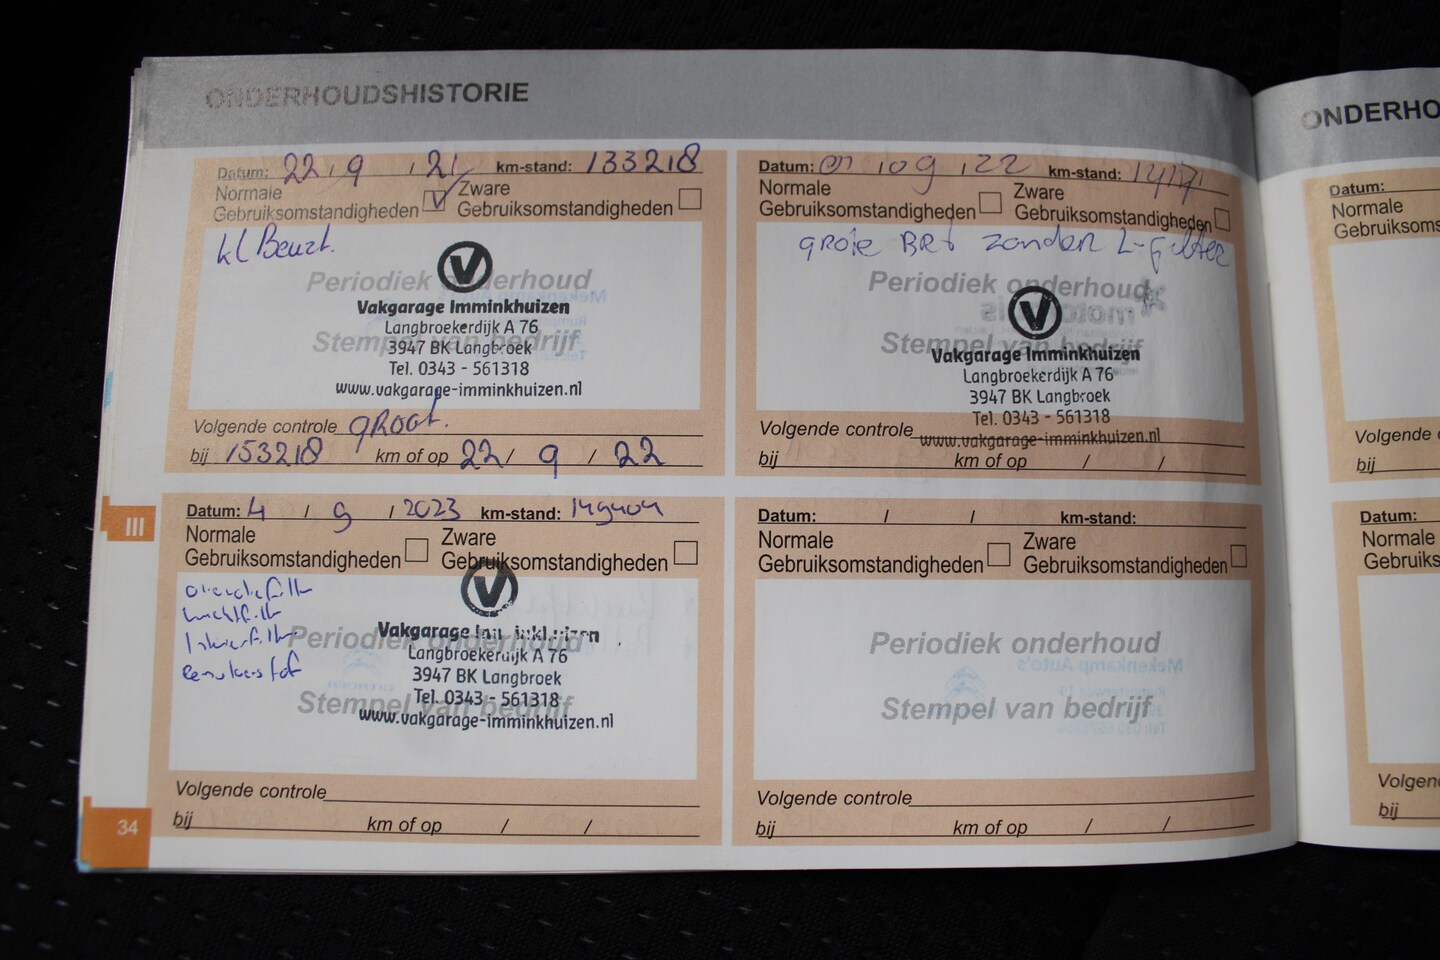 ONDERHOUDSHISTORIE
Datum: 22 / 9 / 21 km-stand: 133218
Normale
Gebruiksomstandigheden
Zware
Gebruiksomstandigheden
kl Beurt.
Periodiek onderhoud
Stempel van bedrijf
Vakgarage Imminkhuizen
Langbroekerdijk A 76
3947 BK Langbroek
Tel. 0343 - 561318
www.vakgarage-imminkhuizen.nl
Volgende controle groot.
bij 153218 km of op 22 / 9 / 22
Datum: 09 / 22 km-stand:
Normale
Gebruiksomstandigheden
Zware
Gebruiksomstandigheden
grote BRT zonder L-filter
Periodiek onderhoud
Stempel van bedrijf
Vakgarage Imminkhuizen
Langbroekerdijk A 76
3947 BK Langbroek
Tel. 0343 - 561318
www.vakgarage-imminkhuizen.nl
Volgende controle
bij km of op / /
Datum: 4 / 9 / 2023 km-stand: 149404
Normale
Gebruiksomstandigheden
Zware
Gebruiksomstandigheden
luchtfilter
Interieurfilter
Remvloeistof
Periodiek onderhoud
Stempel van bedrijf
Vakgarage
Langbroekerdijk A 76
3947 BK Langbroek
Tel. 0343 - 561318
www.vakgarage-imminkhuizen.nl
Volgende controle
bij km of op / /
Datum: / / km-stand:
Normale
Gebruiksomstandigheden
Zware
Gebruiksomstandigheden
Periodiek onderhoud
Stempel van bedrijf
Volgende controle
bij km of op / /
III
34
ONDERHO
Datum:
Normale
Gebruiksoms
Volgende
bij
Datum:
Normale
Gebruiks
Volgend
bij